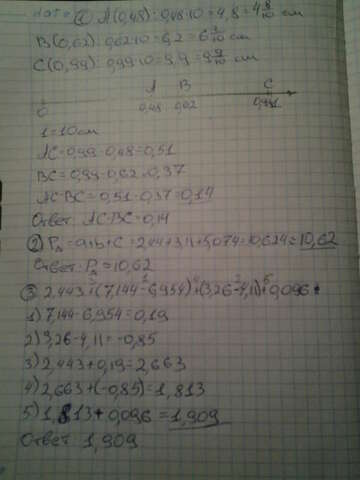 ① A(0,48): 0,48·10=4,8=4 8/10 см
B(0,62): 0,62·10=6,2=6 2/10 см
C(0,99): 0,99·10=9,9=9 9/10 см
A B C
0 0,48 0,62 0,99 1
1=10см
AC=0,99-0,48=0,51
BC=0,99-0,62=0,37
AC-BC=0,51-0,37=0,14
Ответ: AC-BC=0,14
② P =a+b+c=2,44+3,11+5,074=10,624≈10,62
Ответ: P =10,62
③ 2,443+(7,144-6,954)+(3,26-4,11)+0,096
1) 7,144-6,954=0,19
2) 3,26-4,11=-0,85
3) 2,443+0,19=2,663
4) 2,663+(-0,85)=1,813
5) 1,813+0,096=1,909
Ответ 1,909